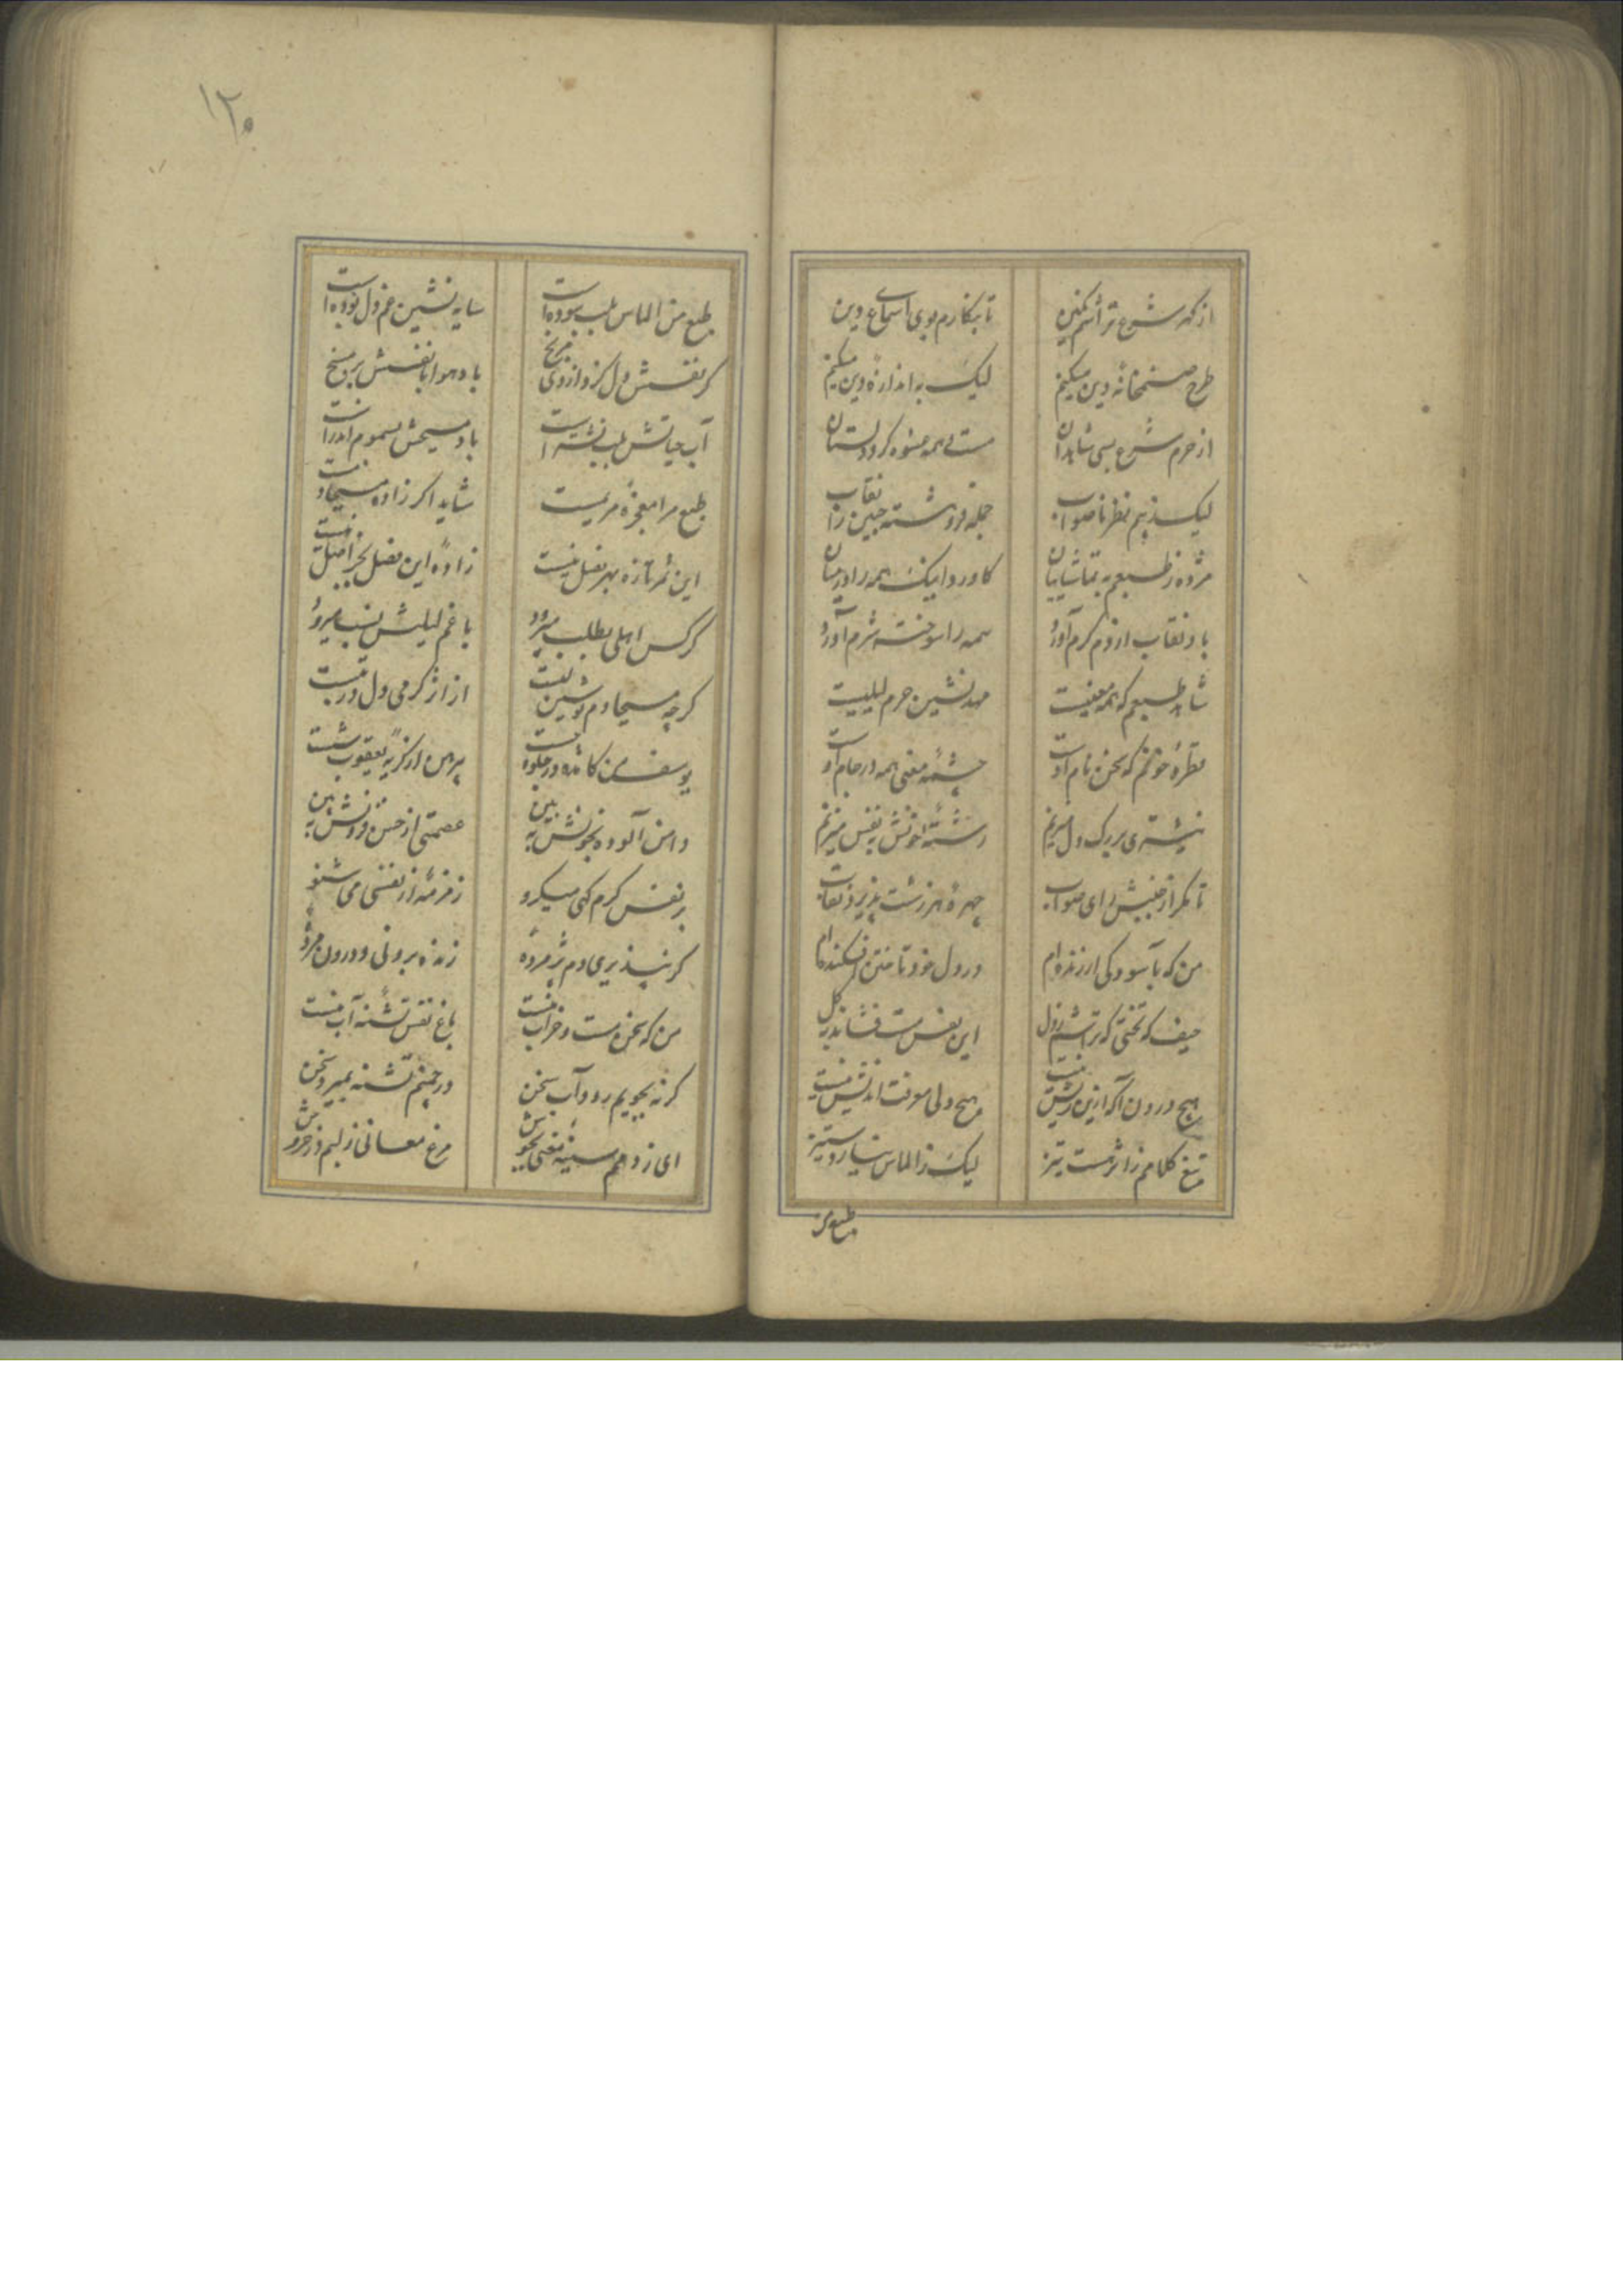 ۱۲۰
از گهر شرع تراشم نگین
تا بنگارم بوی اسمای دین
طرح صنمخانهٔ دین میکنم
لیک به اندازهٔ دین میکنم
از حرم شرع بسی شاهدان
مست همه عشوه گر و دلستان
لیک ز بیم نظر ناصواب
جمله فروهشته جبین را نقاب
مژده ز طبعم به تماشاییان
کاورد اینک همه را در میان
باد نقاب از دم گرم آورد
همه را سوخته شرم آورد
شاهد طبعم که همه معنیست
مهد نشین حرم لیلیست
قطره خونم که سخن نام اوست
چشمه معنی همه در جام اوست
نیشتری بر رگ دل میزنم
رشته خونش به نفس میزنم
تا مگر از جنبش رای صواب
چهرهٔ هر زشت پذیرد نقاب
من که به آسودگی ارزنده‌ام
در دل خود تا ختن افکنده‌ام
حیف که تختی که تراشم ز دل
این نفس مست فشاند به گل
هیچ درون آگه ازین ریش نیست
هیچ دلی معرفت اندیش نیست
تیغ کلامم ز اثر هست تیز
لیک ز الماس نیارد ستیز
طبع من
طبع من الماس طلب بوده است
سایه نشین غم دل بوده است
گر نفسش دل گزد از روی مریخ
باد هوا با نفسش برق و میخ
آب حیاتش بلب تشنه است
باد مسیحش بسموم اندر است
طبع مرا معجزهٔ مریمیست
شاید اگر زاده مسیحا دمیست
این ثمر تازه بهر نخل نیست
زادهٔ این نخل بجز اصل نیست
گر کس اهلی بطلب میرود
با غم لیلیش بسب میرود
گرچه مسیحا دم نوشین تفت
از اثر گرمی دل در تبست
یوسف من کامده در جلوه چست
پیرهن از گریهٔ یعقوب شست
دامن آلوده بخونش ببین
عصمتی از حسن فزونش ببین
بر نفس گرم کهی میگرو
زمزمه از نفسی می شنو
گر نپذیری دم پژمردهٔ
زنده برونی و درون مردهٔ
من که سخن مست و خراب منست
باغ نفس تشنهٔ آب منست
گر نه بجویم رود آب سخن
در چمنم تشنه بمیرد سخن
ای ز دهم سینهٔ معنی بجوش
مرغ معانی ز لبم در خروش